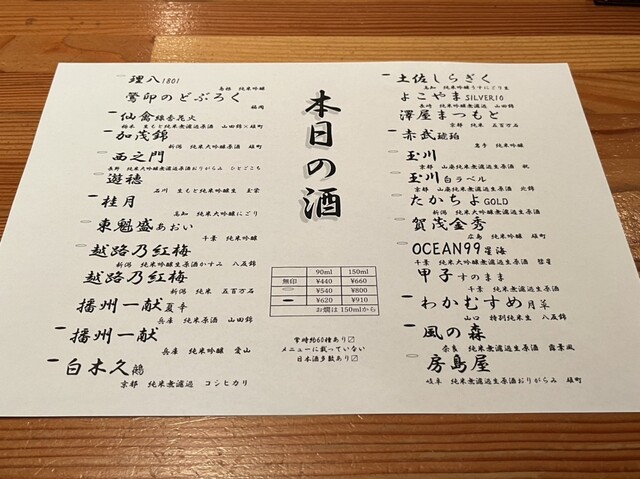 本日の酒
理八1801
島根 純米吟醸
鶯印のどぶろく
福岡
仙禽線香花火
栃木 生もと純米無濾過原酒 山田錦×雄町
加茂錦
新潟 純米大吟醸原酒 雄町
西之門
長野 純米大吟醸無濾過生原酒おりがらみ ひとごこち
遊穂
石川 生もと純米吟醸生 玉栄
桂月
高知 純米大吟醸にごり
東魁盛あおい
千葉 純米吟醸
越路乃紅梅
新潟 純米吟醸生原酒かすみ 八反錦
越路乃紅梅
新潟 純米 五百万石
播州一献夏辛
兵庫 純米原酒 山田錦
播州一献
兵庫 純米吟醸 愛山
白木久鵺
京都 純米無濾過 コシヒカリ
90ml 150ml
無印 ¥440 ¥660
¥540 ¥800
¥620 ¥910
お燗は150mlから
常時約60種あり〼
メニューに載っていない
日本酒多数あり〼
土佐しらぎく
高知 純米吟醸うすにごり生
よこやまSILVER10
長崎 純米吟醸無濾過 山田錦
澤屋まつもと
京都 純米 五百万石
赤武琥珀
岩手 純米吟醸
玉川
京都 山廃純米無濾過生原酒 祝
玉川白ラベル
京都 山廃純米無濾過生原酒 北錦
たかちよGOLD
新潟 純米大吟醸無濾過生原酒
賀茂金秀
広島 純米吟醸 雄町
OCEAN99星海
千葉 純米大吟醸無濾過生原酒 彗星
甲子すのまま
千葉 純米無濾過生原酒
わかむすめ月草
山口 特別純米生 八反錦
風の森
奈良 純米無濾過生原酒 露葉風
房島屋
岐阜 純米無濾過生原酒おりがらみ 雄町